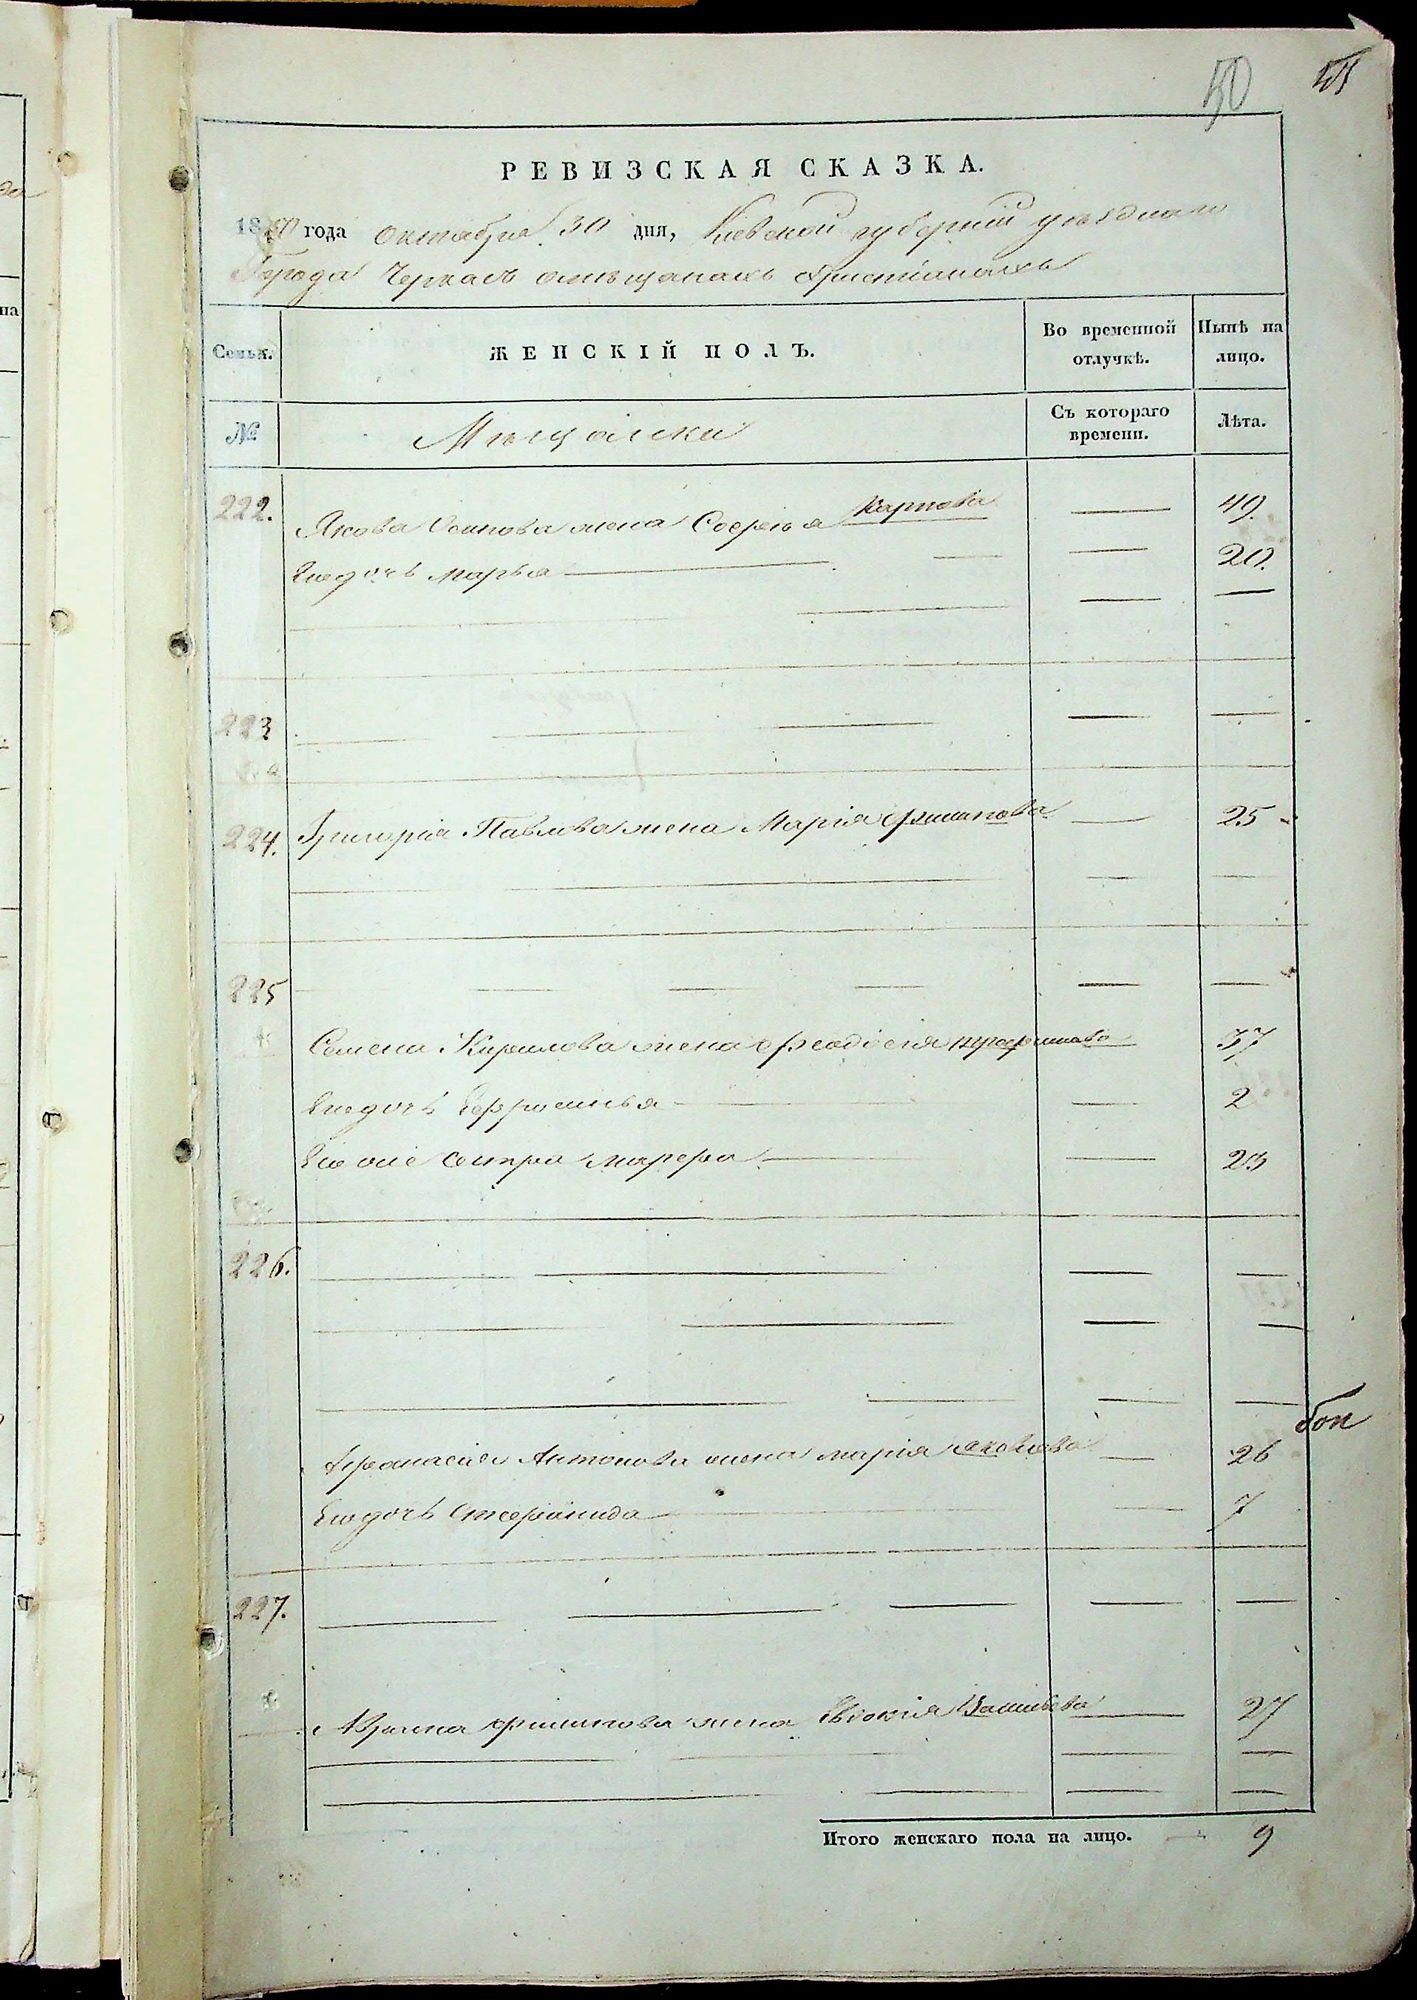 50
РЕВИЗСКАЯ СКАЗКА.
1850 года октября 30 дня, Кіевской губерніи уезднаго
Города Черкасъ омещанахъ христіанахъ
Семьи. ЖЕНСКІЙ ПОЛЪ. Во временной отлучкѣ. Нынѣ на лицо.
№ Мещанки Съ котораго времени. Лѣта.
222. Якова Осипова жена Софія Карпова 49.
Его дочь Марья 20.
223
224. Григорія Павлова жена Марія Филипова 25
225
Семена Кирилова жена Феодосія 37
Его дочь Ефросинья 2
Его же сестра Марфа 23
226.
Афанасія Антонова жена Марія Яковлева 26
Его дочь Стефанида 7
227.
Филипова жена Евдокія Васильева 27
Итого женскаго пола на лицо. 9